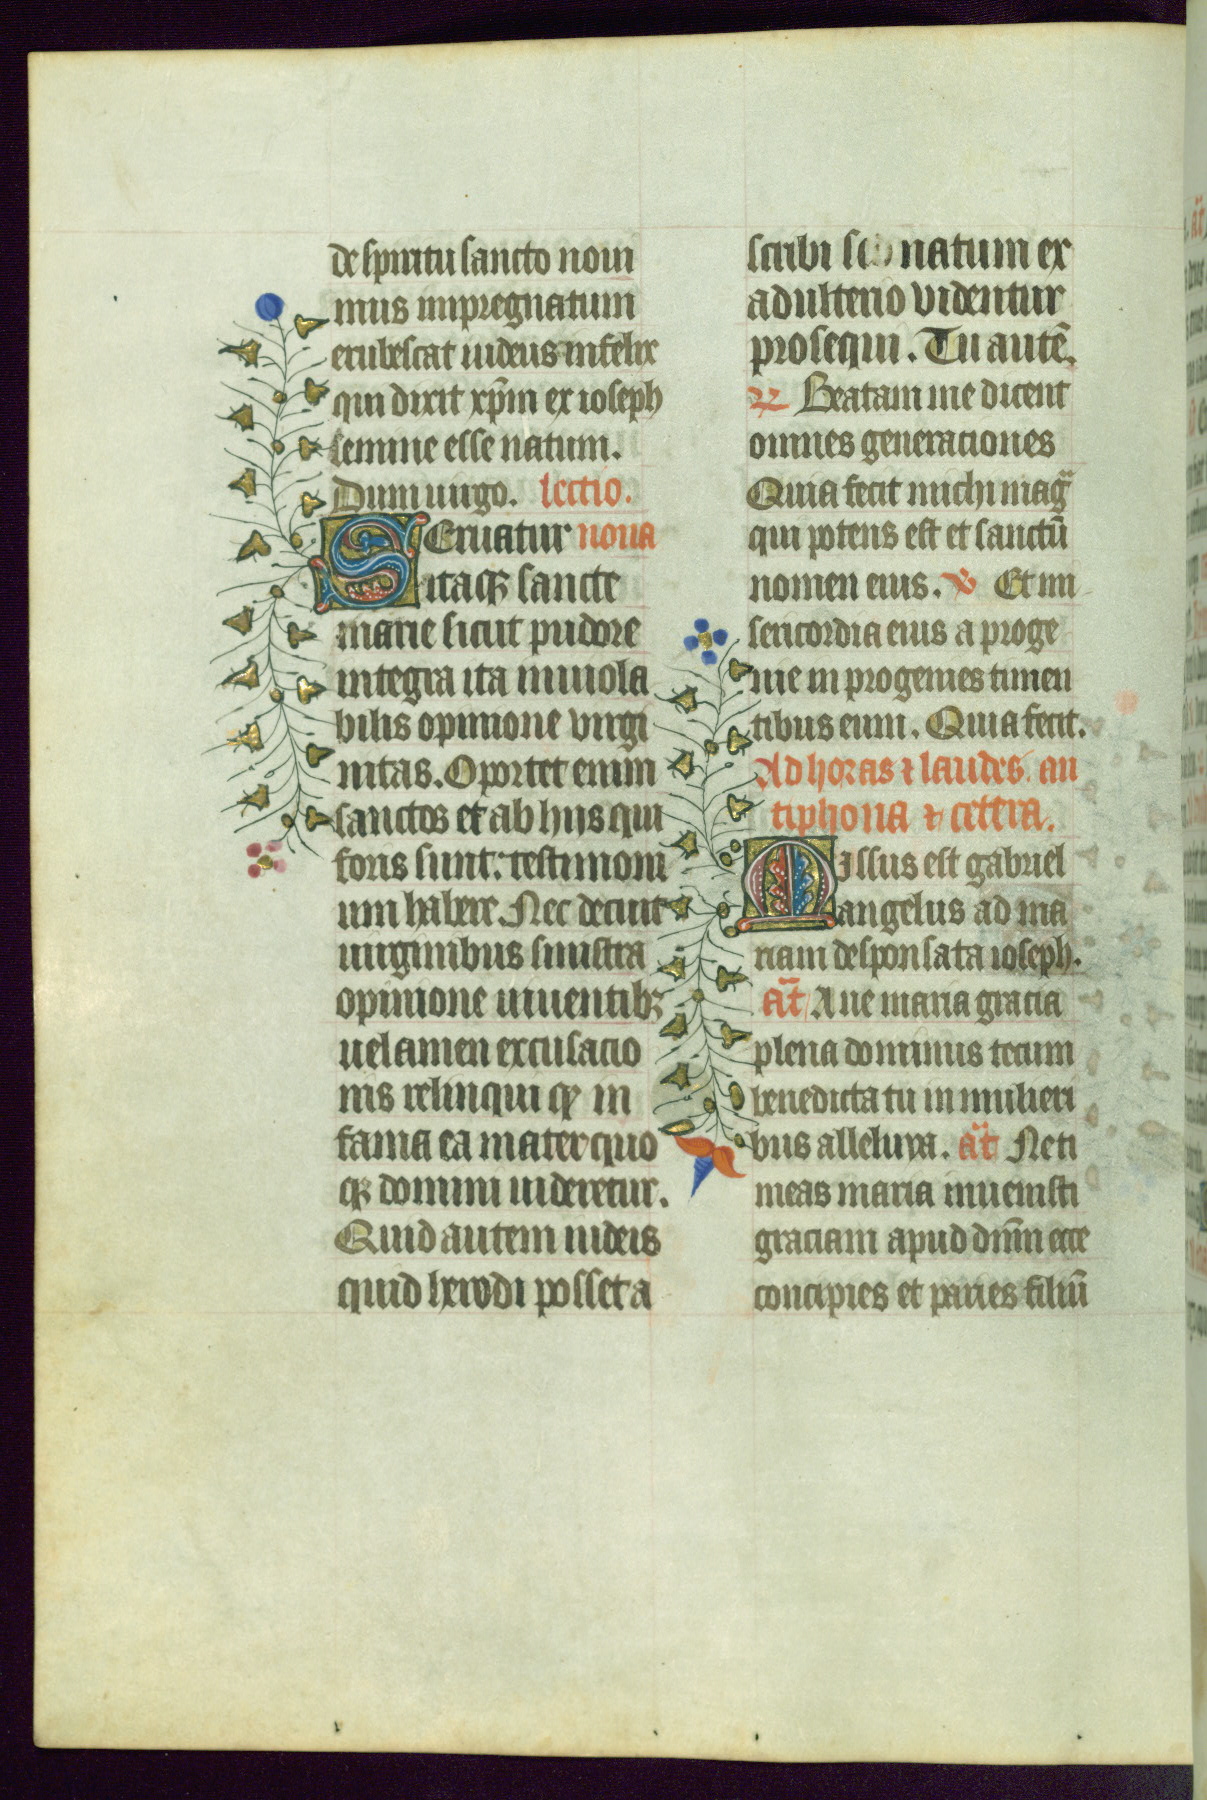 de spiritu sancto noui
mus impregnatum
erubescat iudeus infelix
qui dixit xp̄m ex ioseph
semine esse natum.
Dum uirgo. lectio.
SEruatur nona
itaqꝫ sancte
marie sicut pudore
integra ita inuiola
bilis opinione virgi
nitas. Oportet enim
sanctos et ab hiis qui
foris sunt: testimoni
um habere. Nec decuit
uirginibus sinistra
opinione uiuentibꝫ
uelamen excusacio
nis relinqui qꝫ in
fama ea mater quo
qꝫ domini uideretur.
Quid autem iudeis
quid herodi posset a
scribi si natum ex
adulterio videntur
prosequi. Tu autē.
℟ Beatam me dicent
omnes generaciones
Quia fecit michi mag̃
qui potens est et sanctū
nomen eius. ℣ Et mi
sericordia eius a proge
nie in progenies timen
tibus eum. Quia fecit.
Ad horas ⁊ laudes. an
tiphona ⁊ cetera.
Missus est gabriel
angelus ad ma
riam desponsata ioseph.
añt Aue maria gracia
plena dominus tecum
benedicta tu in mulieri
bus alleluya. añt Ne ti
meas maria inuenisti
graciam apud dn̄m ecce
concipies et paries filiū